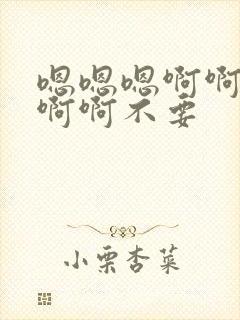 嗯嗯嗯啊啊
啊啊不要
小栗杏菜